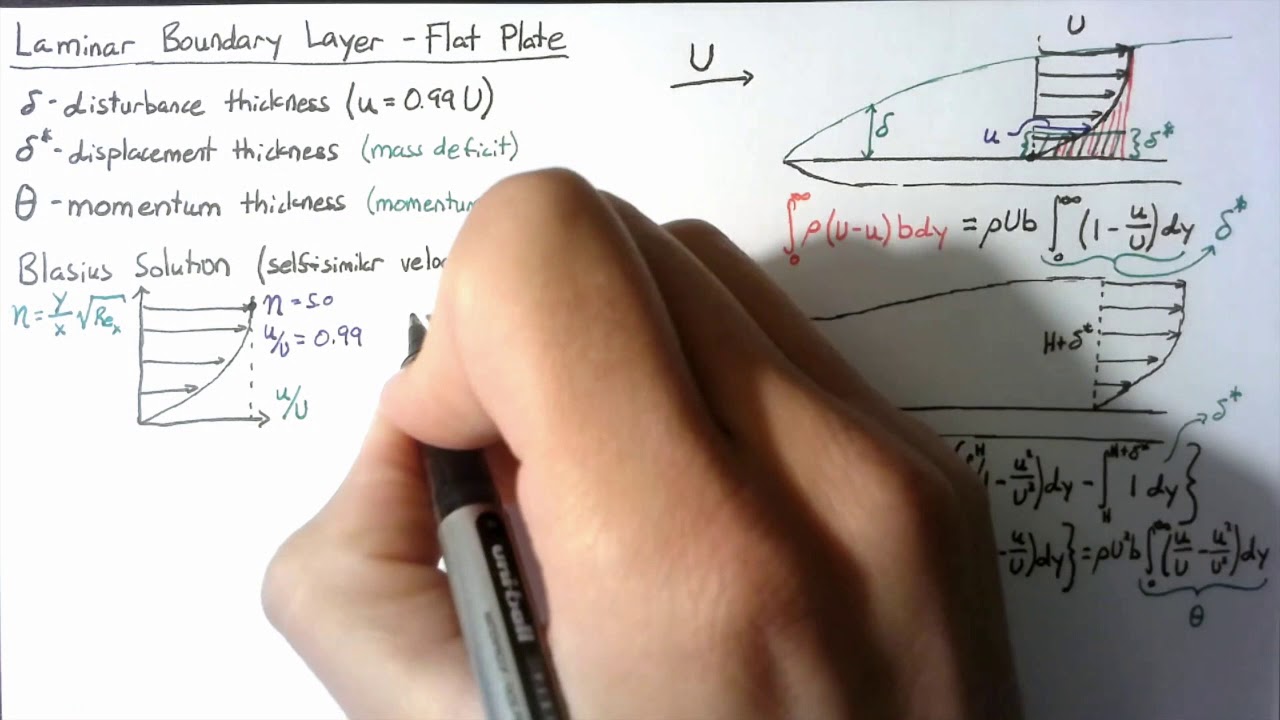 Laminar Boundary Layer - Flat Plate
δ - disturbance thickness (u = 0.99 U)
δ* - displacement thickness (mass deficit)
θ - momentum thickness
Blasius Solution (self-similar
η = y/x √Re_x
η = 5.0
u/U = 0.99
u/U
U
U
δ
u
δ*
∫₀^∞ ρ(U-u) b dy = ρUb ∫₀^∞ (1 - u/U) dy
δ*
H+δ*
δ*
- u²/U²) dy - ∫_H^{H+δ*} 1 dy}
- u/U) dy} = ρU²b ∫₀^∞ (u/U - u²/U²) dy
θ
uni-ball